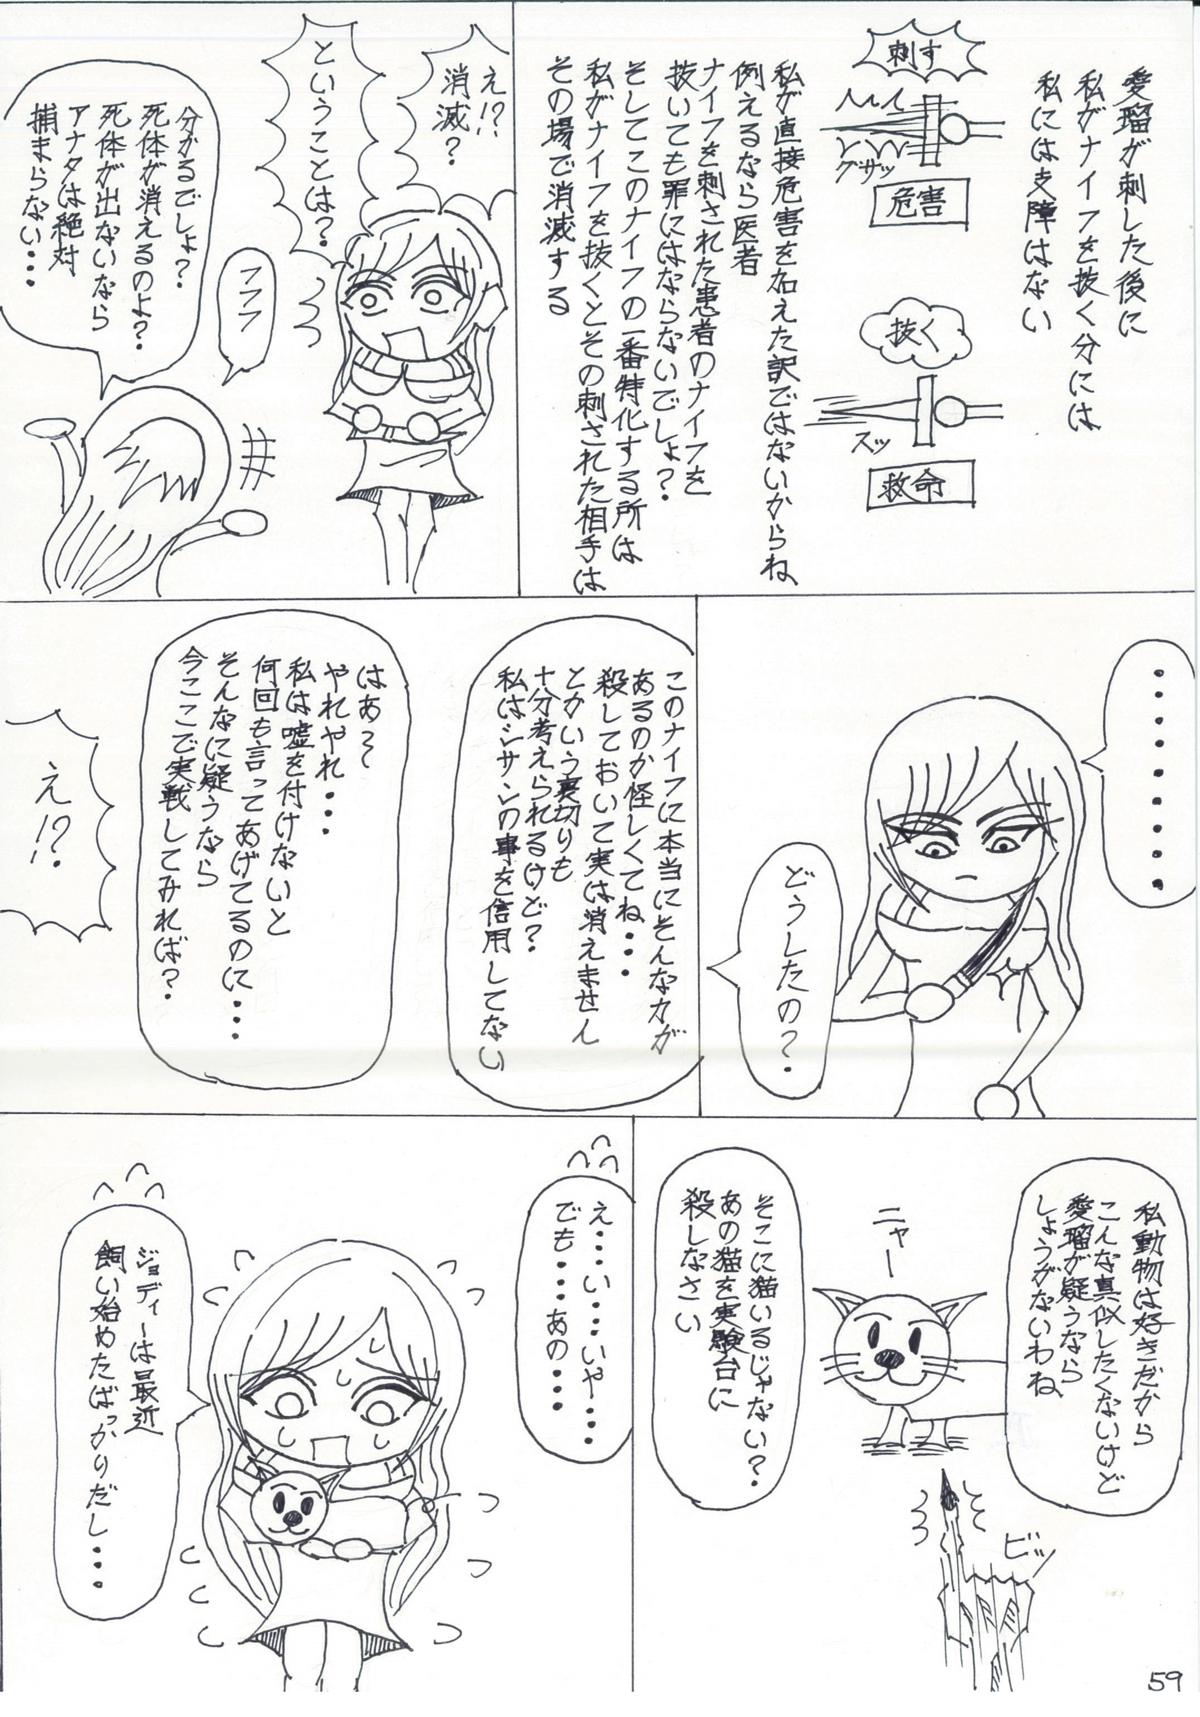 愛瑠が刺した後に
私がナイフを抜く分には
私には支障はない
刺す
グサッ
危害
抜く
スッ
救命
私が直接危害を加えた訳ではないからね
例えるなら医者
ナイフを刺された患者のナイフを
抜いても罪にはならないでしょ？
そしてこのナイフの一番特化する所は
私がナイフを抜くとその刺された相手は
その場で消滅する
え!?
消滅？
ということは？
分かるでしょ？
死体が消えるのよ？
死体が出ないなら
アナタは絶対
捕まらない・・・
フフフ
・・・・・・・・
どうしたの？
このナイフに本当にそんな力が
あるのか怪しくてね・・・
殺しておいて実は消えません
とかいう裏切りも
十分考えられるけど？
私はシサンの事を信用してない
はあ～
やれやれ・・・
私は嘘を付けないと
何回も言ってあげてるのに・・・
そんなに疑うなら
今ここで実戦してみれば？
え!?
私動物は好きだから
こんな真似したくないけど
愛瑠が疑うなら
しょうがないわね
ニャー
ビッ
そこに猫いるじゃない？
あの猫を実験台に
殺しなさい
え・・・い・・・いや・・・
でも・・・・あの・・・・
ジョディーは最近
飼い始めたばっかりだし・・・
59